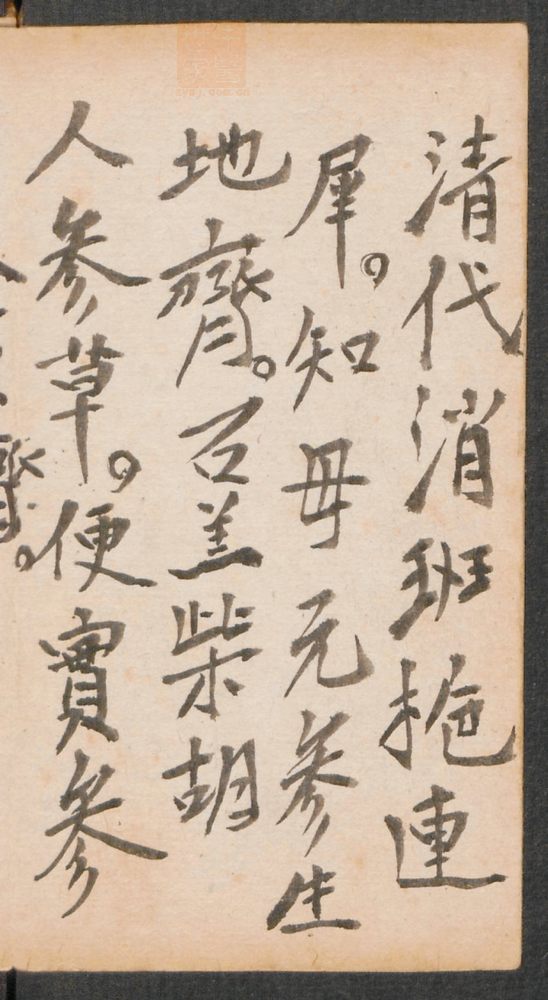 清代消班梔連
犀。知母元参生
地齊。石羔柴胡
人参草。便實参